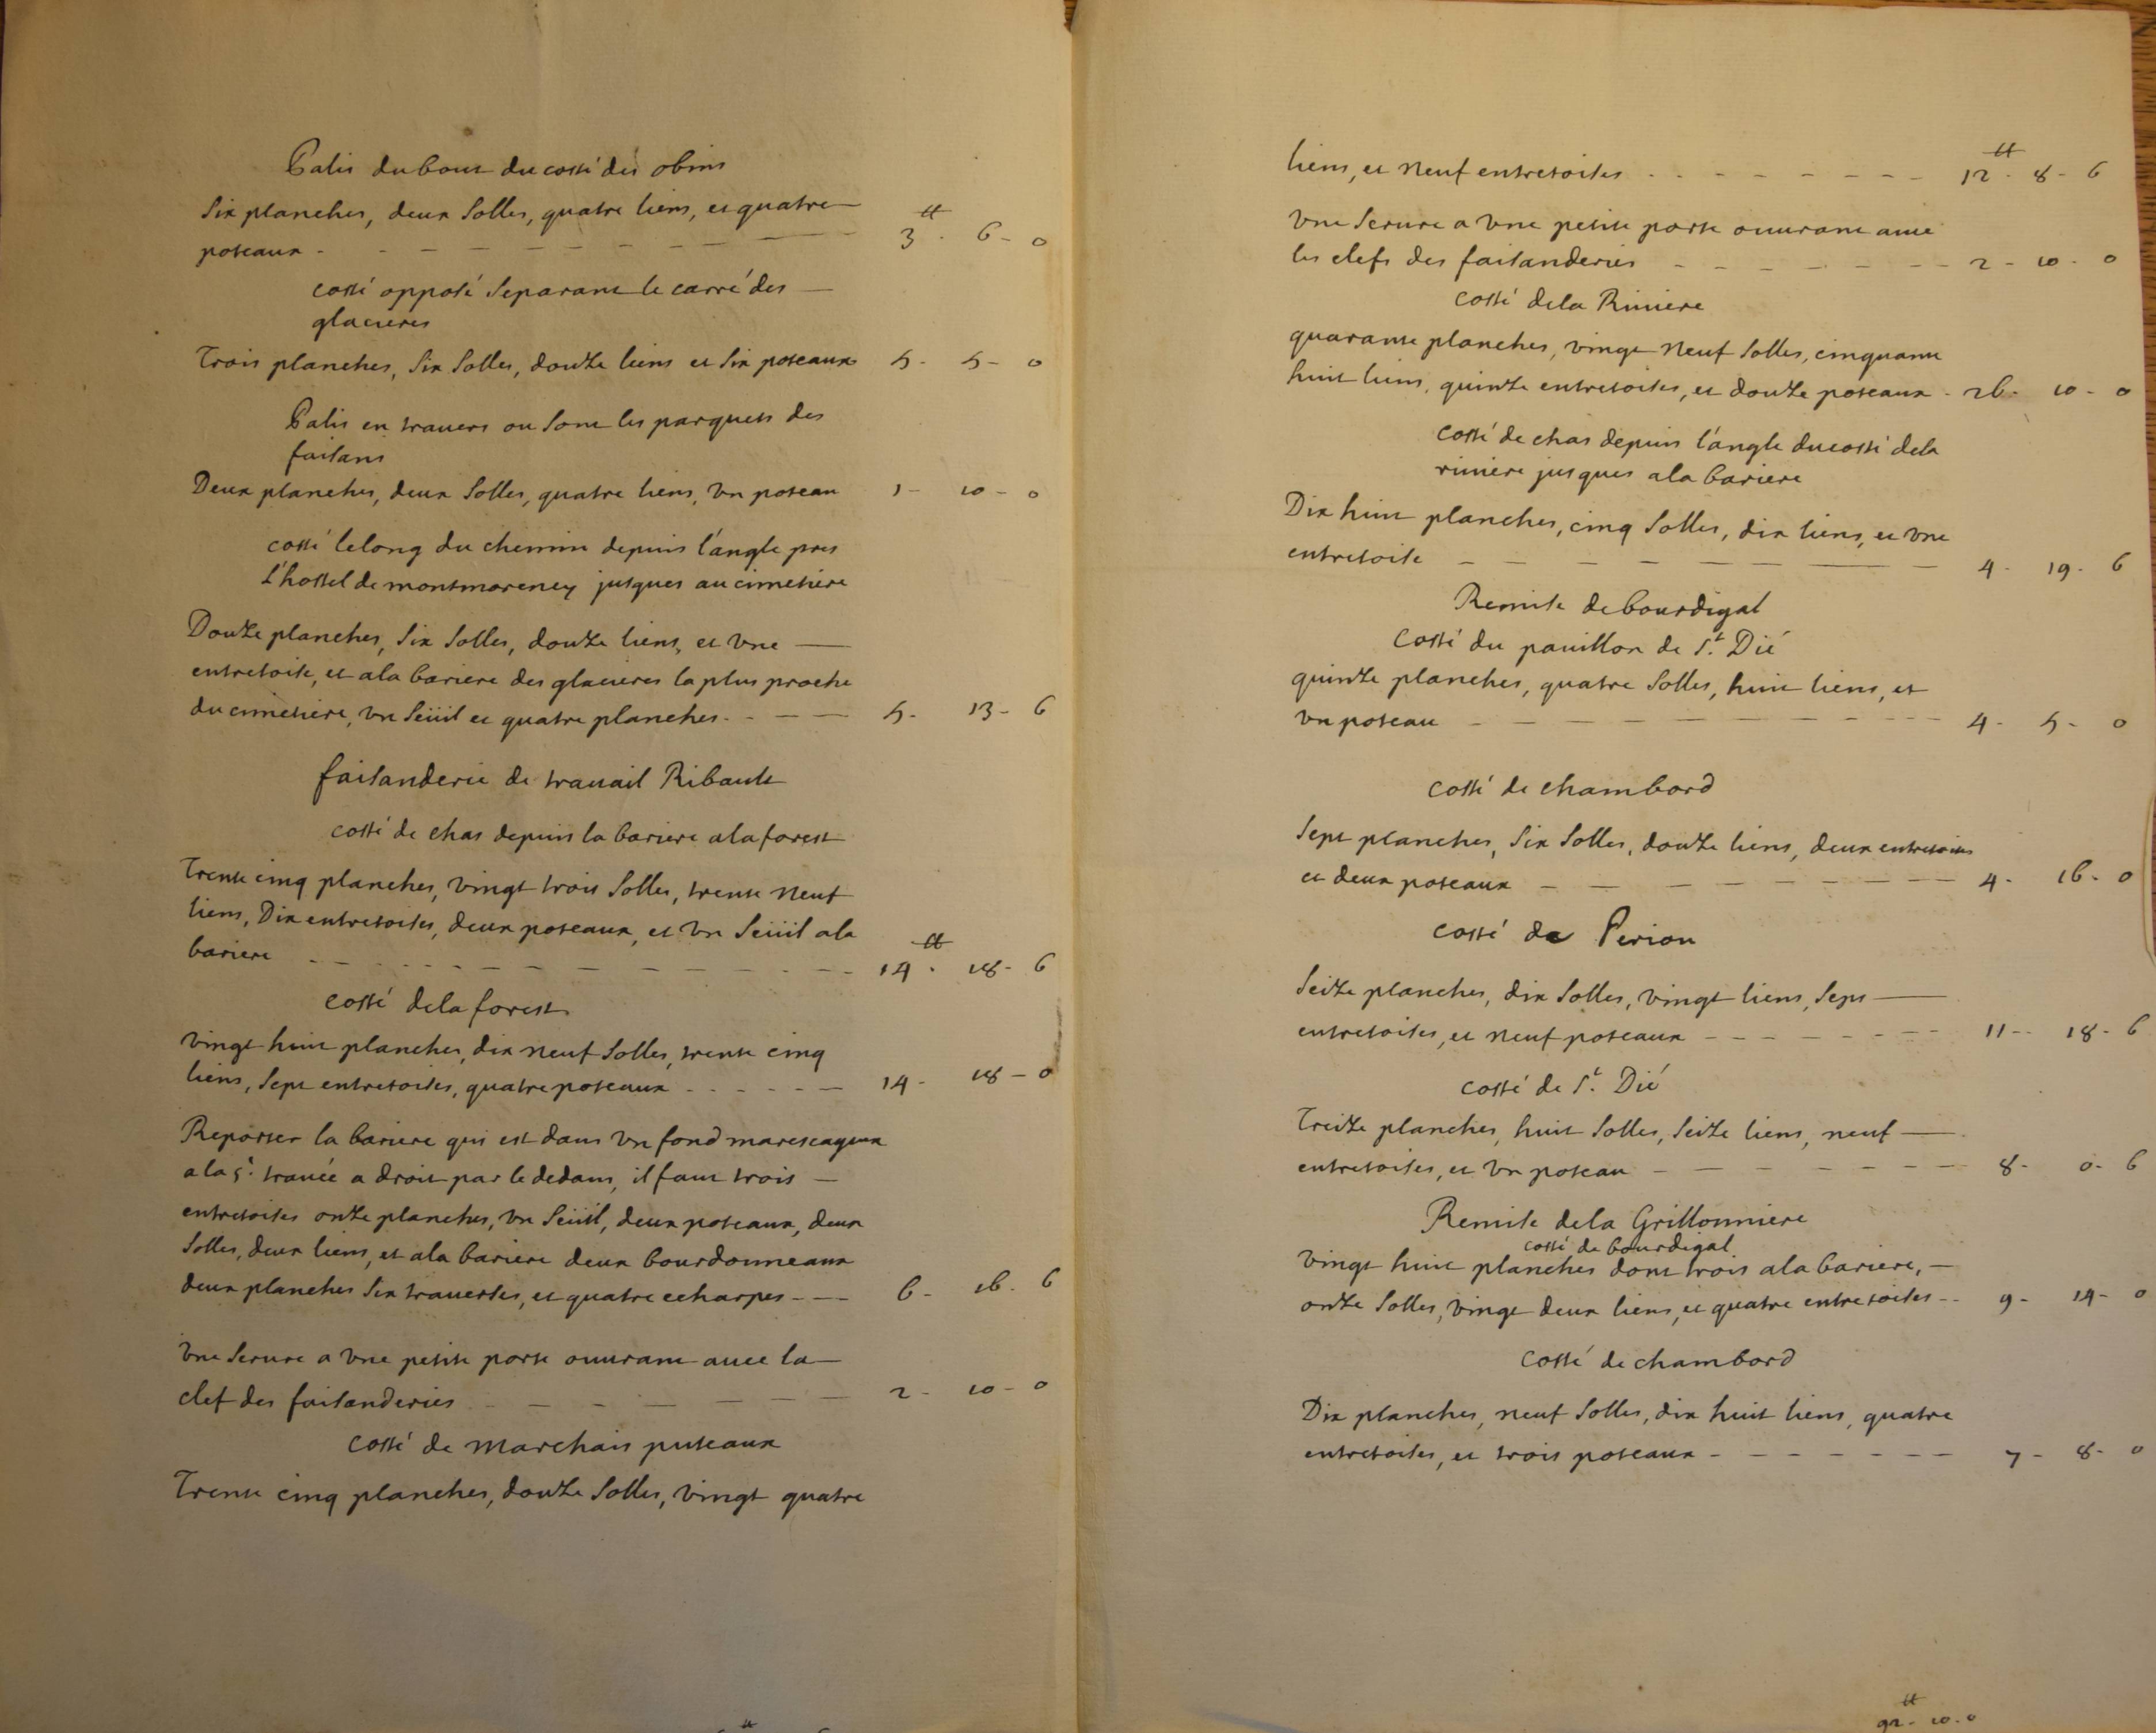 Palis du bout du costé des obins
Six planches, deux Solles, quatre liens, et quatre
poteaux - 3tt. 6 - 0
costé opposé Separant le carré des
glacieres
Trois planches, Six Solles, douze liens et Six poteaux 5 - 5 - 0
Palis en trauers ou Sont les parquets des
faisans
Deux planches, deux Solles, quatre liens, Vn poteau 1 - 10 - 0
costé lelong du chemin depuis l'angle pres
L'hostel de montmorency jusques au cimetiere
Douze planches, Six Solles, douze liens, et Vne
entretoise, et ala bariere des glacieres la plus proche
du cimetiere, Vn Seüil et quatre planches - 5 - 13 - 6
faisanderie de trauail Ribault
costé de chas depuis la bariere ala forest
Trente cinq planches, Vingt trois Solles, trente Neuf
liens, Dix entretoises, deux poteaux, et Vn Seüil ala
bariere - 14tt. 18 - 6
costé dela forest
Vingt huit planches, dix neuf Solles, trente cinq
liens, Sept entretoises, quatre poteaux - 14 - 18 - 0
Reposter la bariere qui est dans Vn fond marescageux
ala 5e. trauée a droit par le dedans, il faut trois
entretoises onze planches, Vn Seüil, deux poteaux, deux
Solles, deux liens, et ala bariere deux bourdonneaux
deux planches Six trauerses, et quatre echarpes - 6 - 16 - 6
Vne Serure a Vne petite porte ouurant auec la
clef des faisanderies 2 - 10 - 0
costé de marchais puteaux
Trente cinq planches, douze Solles, Vingt quatre
liens, et Neuf entretoises - 12tt. 8 - 6
Vne Serure a Vne petite porte ouurant auec
les clefs des faisanderies - 2 - 10 - 0
costé dela Riuiere
quarante planches, vingt Neuf Solles, cinquante
huit liens, quinze entretoises, et douze poteaux - 26 - 10 - 0
costé de chas depuis l'angle ducosté dela
riuiere jusques ala bariere
Dix huit planches, cinq Solles, dix liens, et Vne
entretoise - 4 - 19 - 6
Remise de bourdigal
Costé du pauillon de St. Dié
quinze planches, quatre Solles, huit liens, et
Vn poteau - 4 - 5 - 0
costé de chambord
Sept planches, Six Solles, douze liens, deux entretoises
et deux poteaux - 4 - 16 - 0
costé de Periou
Seize planches, dix Solles, vingt liens, Sept
entretoises, et Neuf poteaux - 11 - 18 - 6
costé de St. Dié
Treize planches, huit Solles, Seize liens, neuf
entretoises, et Vn poteau - 8 - 0 - 6
Remise dela Grillonniere
costé de bourdigal
Vingt huit planches dont trois ala bariere,
onze Solles, Vingt deux liens, et quatre entretoises - 9 - 14 - 0
Costé de chambord
Dix planches, neuf Solles, dix huit liens, quatre
entretoises, et trois poteaux - 7 - 8 - 0
92tt. 10. 0